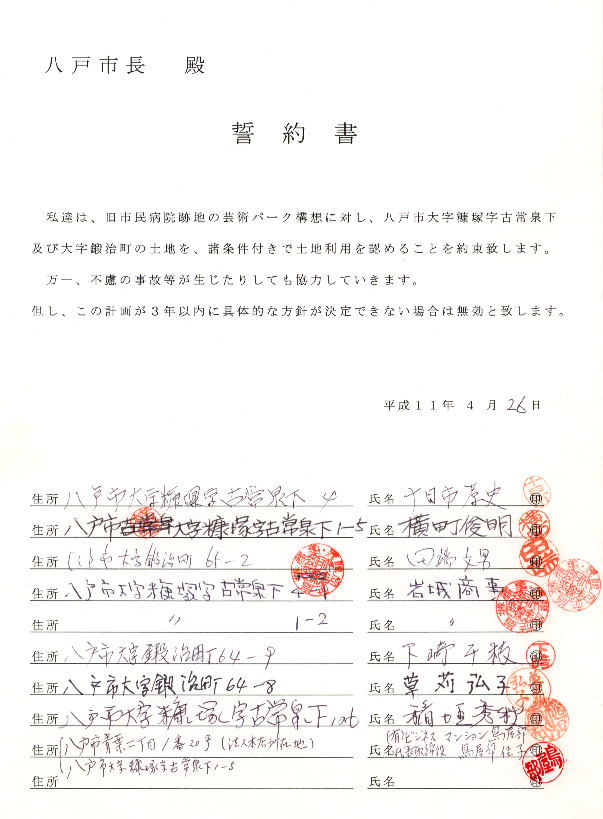 八戸市長　殿
誓約書
私達は、旧市民病院跡地の芸術パーク構想に対し、八戸市大字糠塚字古常泉下
及び大字鍛治町の土地を、諸条件付きで土地利用を認めることを約束致します。
万一、不慮の事故等が生じたりしても協力していきます。
但し、この計画が３年以内に具体的な方針が決定できない場合は無効と致します。
平成１１年 ４ 月 26 日
住所 八戸市大字糠塚字古常泉下 4 氏名 十日市 印
住所 八戸市大字糠塚字古常泉下1-5 氏名 横町俊明 印
住所 八戸市大字鍛治町 65-2 氏名 田端 男 印
住所 八戸市大字糠塚字古常泉下 氏名 岩城商事 印
住所 〃 1-2 氏名 〃 印
住所 八戸市大字鍛治町64-9 氏名 下崎 印
住所 八戸市大字鍛治町64-8 氏名 草苅弘子 印
住所 八戸市大字糠塚字古常泉下 氏名 稲垣 印
住所 八戸市青葉二丁目1番20号（法人本店所在地） 氏名 (有)ビジネスマンション鳥屋部
代表取締役 鳥屋部佳子
住所 八戸市大字糠塚字古常泉下1-5 氏名